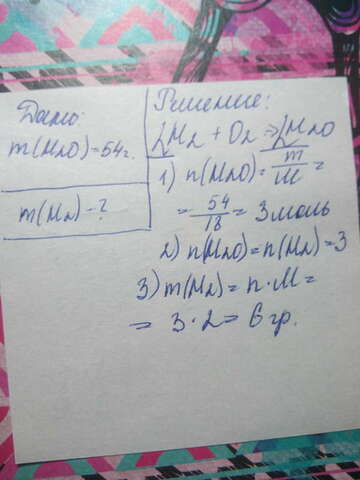 Дано:
m(H₂O)=54г.
m(H₂)-?
Решение:
2H₂ + O₂ => 2H₂O
1) n(H₂O) = m/M =
= 54/18 = 3 моль
2) n(H₂O) = n(H₂) = 3
3) m(H₂) = n · M =
= 3 · 2 = 6 гр.